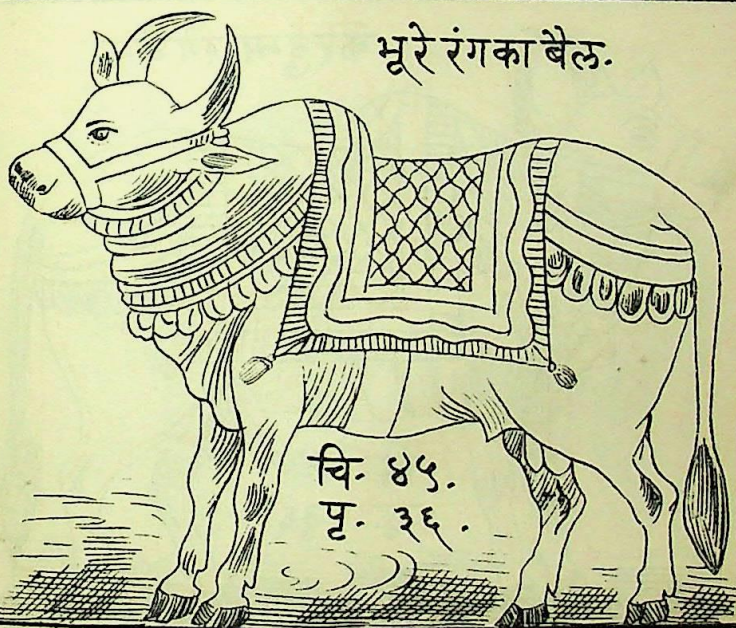 भूरे रंगका बैल.
चि. ४५.
पृ. ३६.